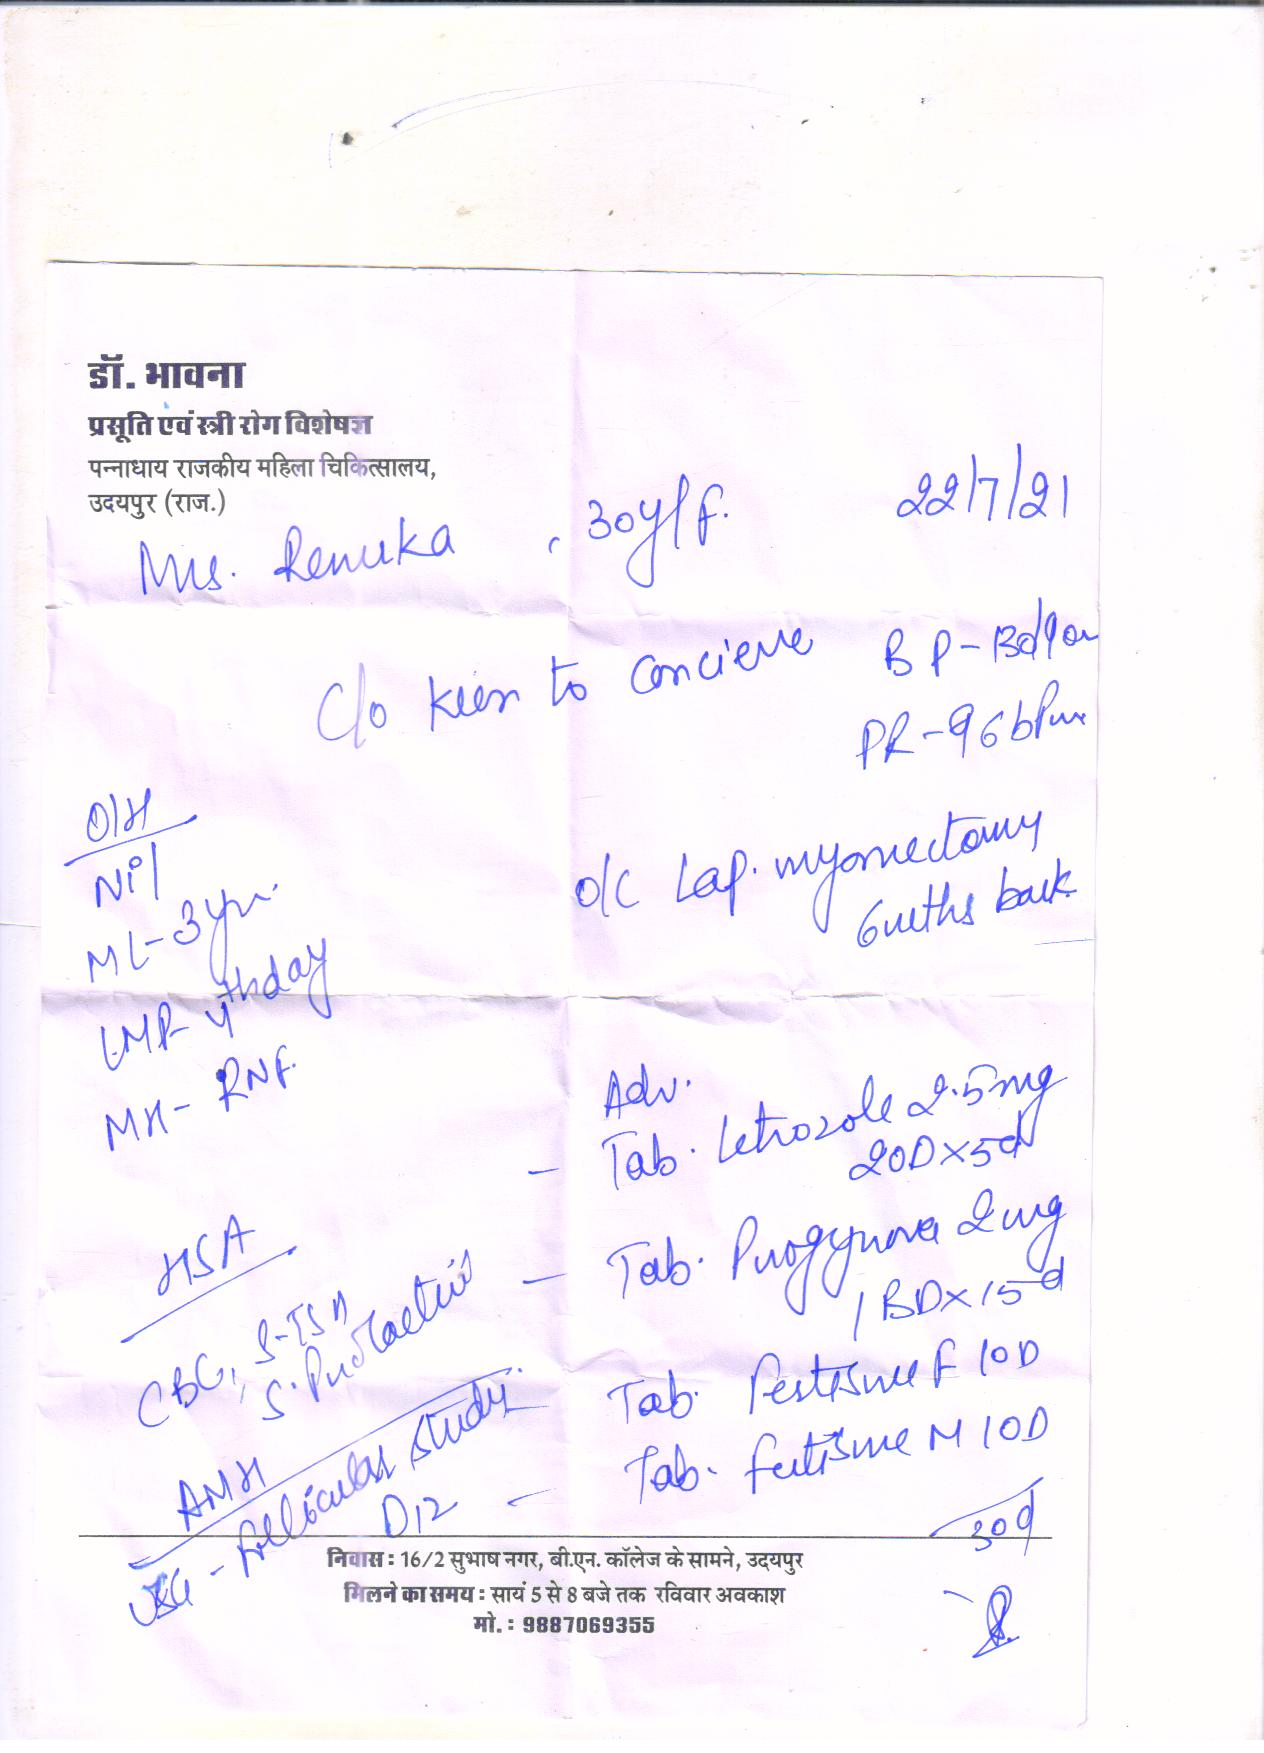 डॉ. भावना
प्रसूति एवं स्त्री रोग विशेषज्ञ
पन्नाधाय राजकीय महिला चिकित्सालय,
उदयपुर (राज.)
22/7/21
Mrs. Renuka , 30y/f.
C/o Keen to Concieve
BP-130/90
PR-96bpm
O/H
Nil
ML-3yr.
LMP-4th day
MH-RNF.
O/C Lap. myomectomy
6mths back
Adv.
- Tab. Letrozole 2.5mg
2OD×5d
- Tab. Progynova 2mg
1 BD×15d
Tab. Fertisure F 1OD
- Tab. Fertisure M 1OD
30d
HSA
CBC, S-TSH
S. Prolactin
AMH
USG - follicular study
D12
निवास : 16/2 सुभाष नगर, बी.एन. कॉलेज के सामने, उदयपुर
मिलने का समय : सायं 5 से 8 बजे तक रविवार अवकाश
मो. : 9887069355